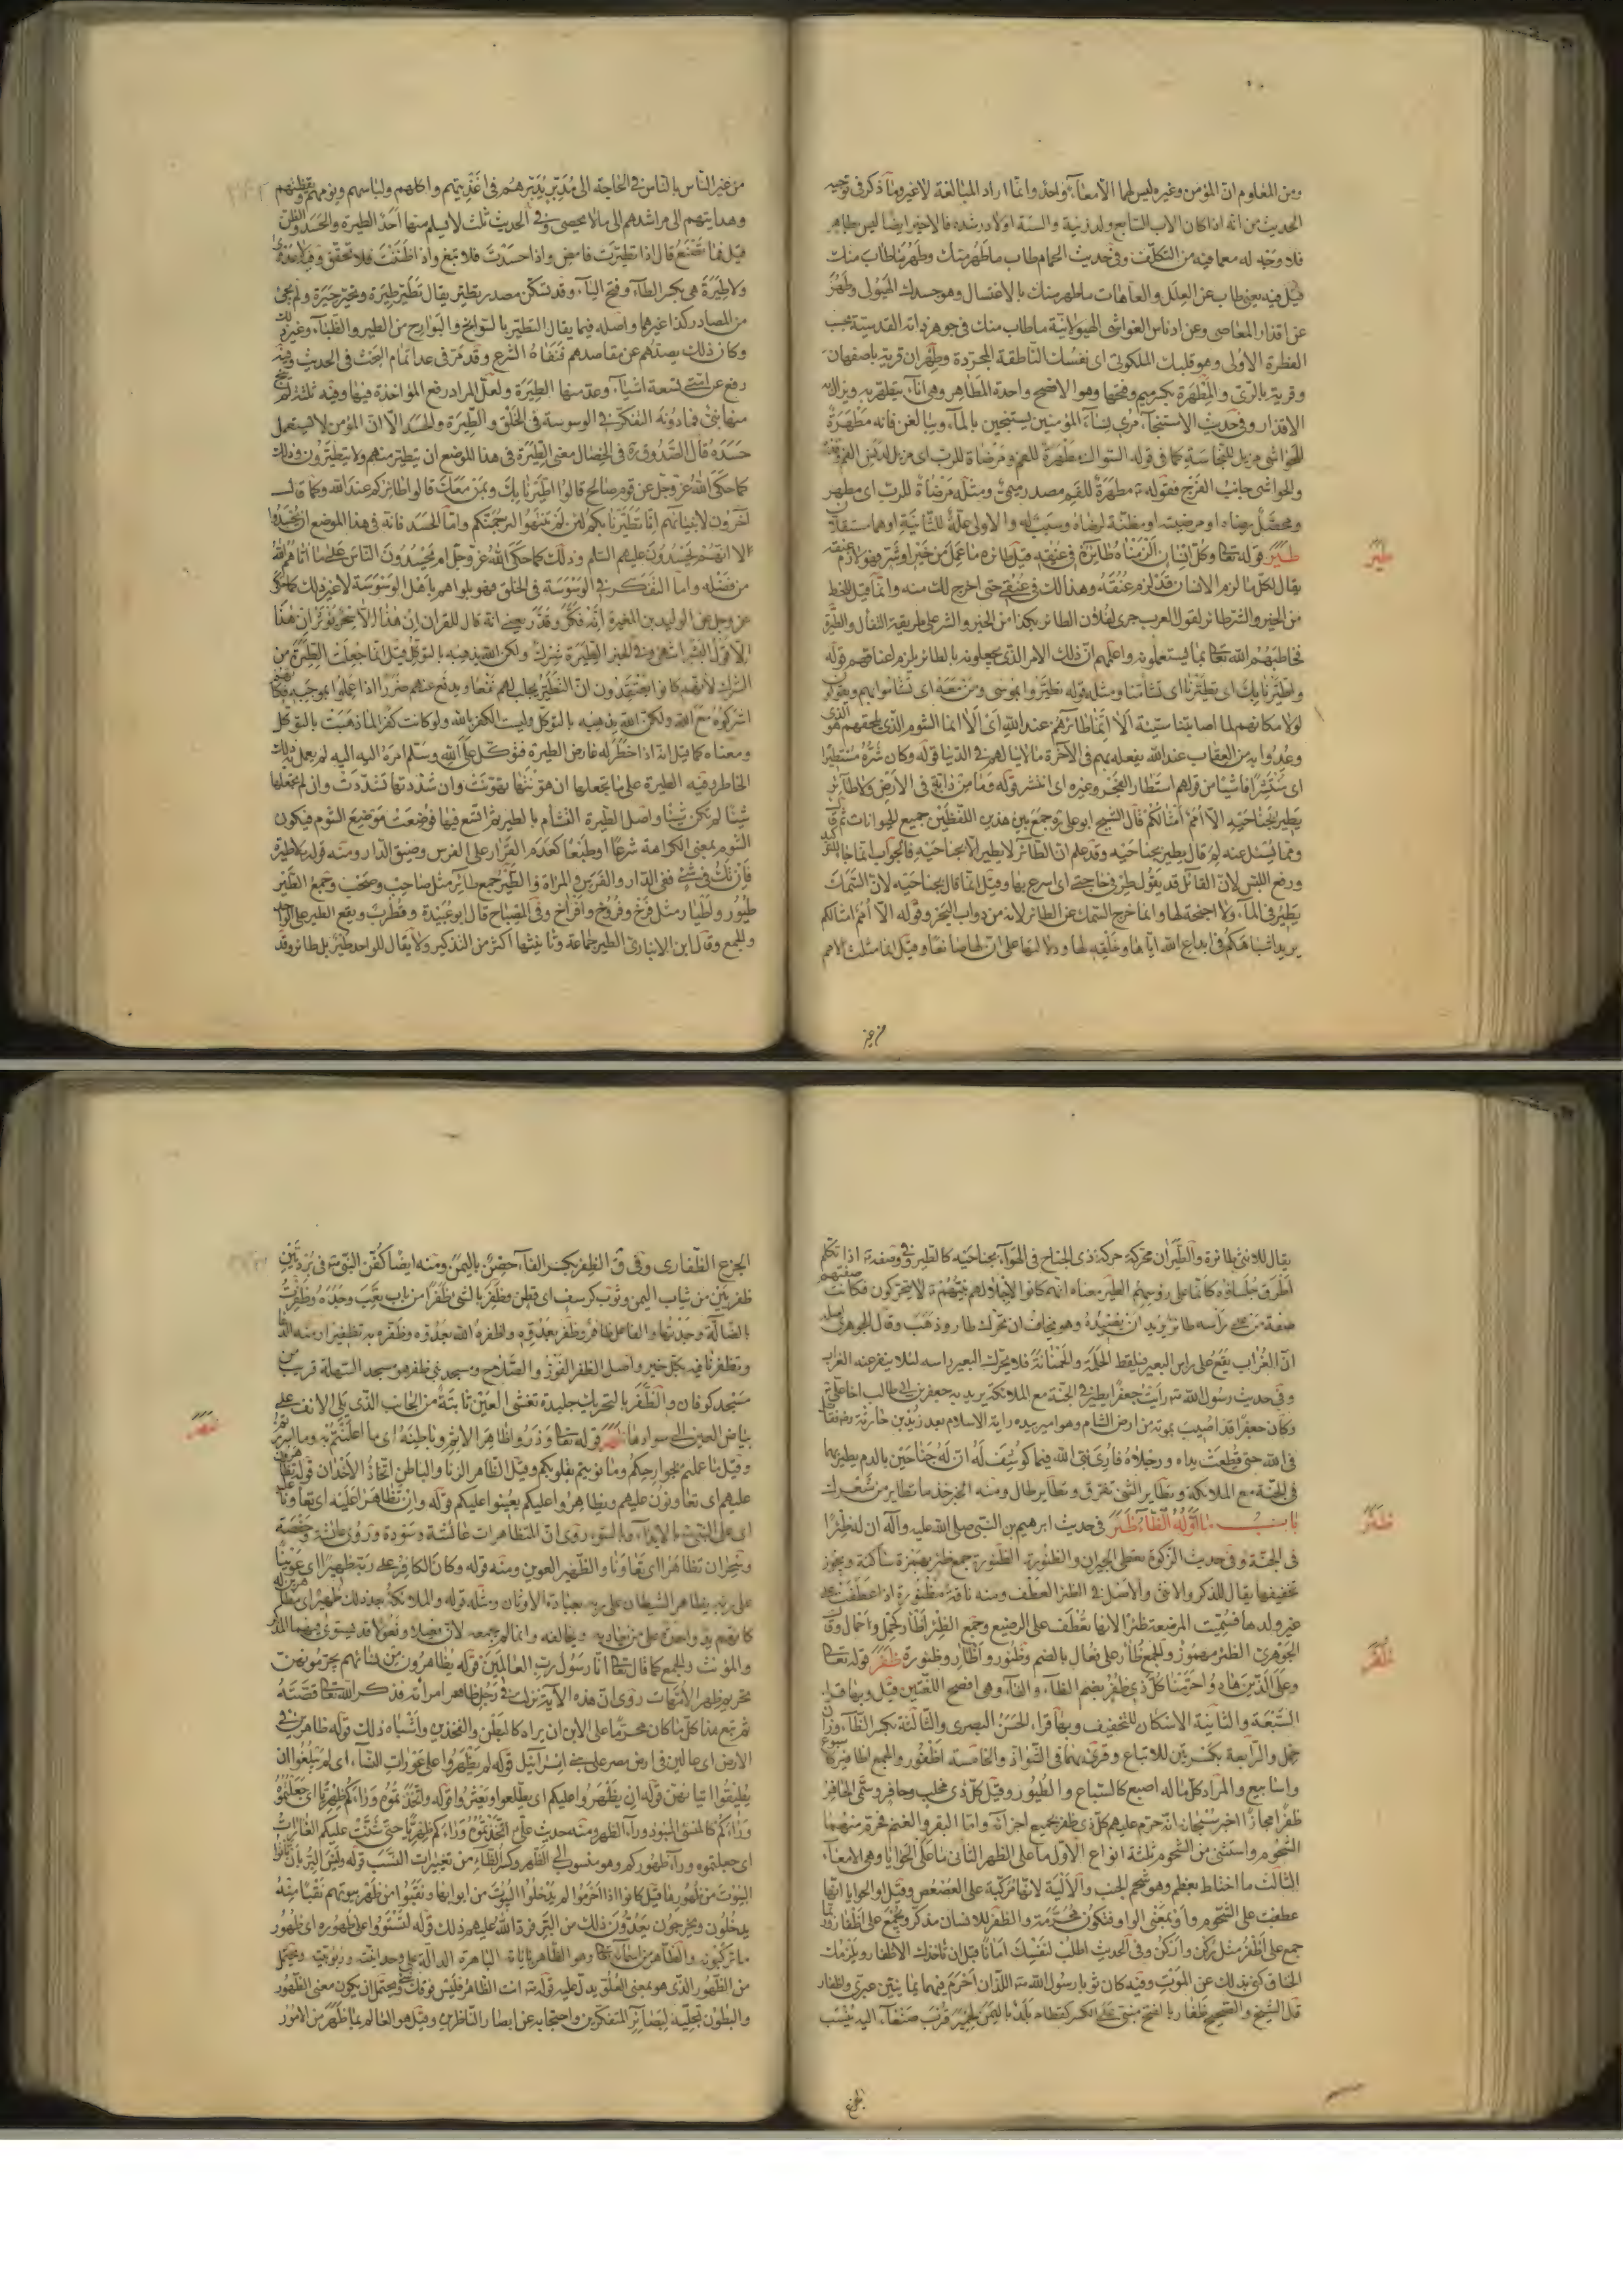 ومن المعلوم ان المؤمن وغيره ليس لهما الا معاء واحد وانما اراد المبالغة لا غير وما ذكر في توجيه
الحديث من انه اذا كان الاب السابع ولد زنية والستة اولاد رشدة فالاخير ايضا ليس بطاهر
فلا وجه له مع ما فيه من التكلف وفي حديث الحمام طاب ما طهر منك وطهر ما طاب منك
قيل فيه يعني طاب عن العلل والعاهات ما طهر منك بالاغتسال وهو جسدك الهيولى وطهر
عن اقذار المعاصي وعن ادناس الغواشي الهيولانية ما طاب منك في جوهر ذاته القدسية بحسب
الفطرة الاولى وهو قلبك الملكوتي اي نفسك الناطقة المجردة وطهران قرية باصفهان
وقرية بالري والمطهرة بكسر ميم وفتحها وهو الافصح واحدة المطاهر وهي اناء يتطهر به ويزال به
الاقذار وفي حديث الاستنجاء مري نساء المؤمنين يستنجين بالماء ويبالغن فانه مطهرة
للحواشي مزيل للنجاسة كما في قوله السواك مطهرة للفم ومرضاة للرب اي مزيل لدنس الفم
والحواشي جانب الفرج فقوله مطهرة للفم مصدر ميمي ومثله مرضاة للرب اي مطهر
ومحصل رضاه او مرضية او مظنة لرضاه وسبب له والاولى علة للثانية او هما مستقلان
طير قوله تعالى وكل انسان الزمناه طائره في عنقه قيل طائره ما عمل من خير او شر فهو لازم عنقه
يقال لكل ما لزم الانسان قد لزم عنقه وهذا لك في عنقي حتى اخرج لك منه وانما قيل للحظ
من الخير والشر طائر لقول العرب جرى لفلان الطائر بكذا من الخير والشر على طريقة التفأل والطيرة
فخاطبهم الله تعالى بما يستعملونه واعلمهم ان ذلك الامر الذي يجعلونه بالطائر يلزم اعناقهم قوله
واطيرنا بك اي تطيرنا اي تشأمنا ومثله قوله تطيروا بموسى ومن معه اي تشأموا بهم
لولا مكانهم لما اصابتنا سيئة الا انما طائرهم عند الله اي الا انما الشوم الذي يلحقهم هو الذي
وعدوا به من العقاب عند الله يفعله بهم في الآخرة ما لا ينالهم في الدنيا قوله وكان شره مستطيرا
اي منتشرا فاشيا من قولهم استطار الفجر وغيره اي انتشر قوله وما من دابة في الارض ولا طائر
يطير بجناحيه الا امم امثالكم قال الشيخ ابو علي ره جمع بين هذين اللفظين جميع الحيوانات ثم قال
ومما يسئل عنه لم قال يطير بجناحيه وقد علم ان الطائر لا يطير الا بجناحيه فالجواب انما جاء للتوكيد
ورفع اللبس لان القائل قد يقول طر في حاجتي اي اسرع بها وقيل انما قال بجناحيه لان السمك
يطير في الماء ولا اجنحة لها وانما خرج السمك عن الطائر لانه من دواب البحر وقوله الا امم امثالكم
يريد اشباهكم في ابداع الله اياها وخلقه لها ودلالتها على ان لها صانعا وقيل انما مثلت الامم
طير
من غير الناس بالناس في الحاجة الى مدبر يدبرهم في اغذيتهم واكلهم ولباسهم ونومهم ويقظتهم
وهدايتهم الى مراشدهم الى ما لا يحصى وفي الحديث ثلث لا يسلم منها احد الطيرة والحسد والظن
قيل فما نصنع قال اذا تطيرت فامض واذا حسدت فلا تبغ واذا ظننت فلا تحقق وفيه لا عدوى
ولا طيرة هي بكسر الطاء وفتح الياء وقد تسكن مصدر يتطير يقال تطير طيرة وتخير خيرة ولم يجئ
من المصادر كذا غيرهما واصله فيما يقال التطير بالسوانح والبوارح من الطير والظباء وغير ذلك
وكان ذلك يصدهم عن مقاصدهم فنفاه الشرع وقد مر في عدا تمام البحث في الحديث وفيه
رفع عن امتي تسعة اشياء وعد منها الطيرة ولعل المراد رفع المؤاخذة فيها وفيه ثلثة لم ينج
منها نبي فما دونه التفكر في الوسوسة في الخلق والطيرة والحسد الا ان المؤمن لا يستعمل
حسده قال الصدوق ره في الخصال معنى الطيرة في هذا الموضع ان يتطير منهم ولا يتطيرون وذلك
كما حكى الله عز وجل عن قوم صالح قالوا اطيرنا بك وبمن معك قال طائركم عند الله وكما قال
آخرون لانبيائهم انا تطيرنا بكم لئن لم تنتهوا لنرجمنكم واما الحسد فانه في هذا الموضع ان يحسدوا
لا انهم يحسدون عليهم السلم وذلك كما حكى الله عز وجل ام يحسدون الناس على ما آتاهم الله
من فضله واما التفكر في الوسوسة في الخلق فهو بلواهم باهل الوسوسة لا غير ذلك كما حكى
عز وجل عن الوليد بن المغيرة انه فكر وقدر يعني انه قال للقرآن ان هذا الا سحر يؤثر ان هذا
الا قول البشر انتهى وفي الخبر الطيرة شرك ولكن الله يذهبه بالتوكل قيل انما جعلت الطيرة من
الشرك لانهم كانوا يعتقدون ان التطير يجلب لهم نفعا ويدفع عنهم ضررا اذا عملوا بموجبه فكانهم
اشركوه مع الله ولكن الله يذهبه بالتوكل وليست الكفر بالله ولو كانت كفرا لما ذهبت بالتوكل
ومعناه كما قيل انه اذا خطر له عارض الطيرة فتوكل على الله وسلم امره اليه لم يعمل به ذلك
الخاطر وفيه الطيرة على ما تجعلها ان هونتها تهونت وان شددتها تشددت وان لم تجعلها
شيئا لم تكن شيئا واصل الطيرة التشأم بالطير ثم اتسع فيها فوضعت موضع الشوم فيكون
الشوم بمعنى الكراهة شرعا او طبعا كعدم القرار على الفرس وضيق الدار ومنه قوله لا طيرة
فان تك في شيء ففي الدار والفرس والمرأة والطير جمع طائر مثل صاحب وصحب وجمع الطير
طيور واطيار مثل فرخ وفروخ وافراخ وفي المصباح قال ابو عبيدة وقطرب ويقع الطير على الواحد
والجمع وقال ابن الانباري الطير جماعة وتأنيثها اكثر من التذكير ولا يقال للواحد طير بل طائر وقد
يقال للانثى طائرة والطيران محركة حركة ذي الجناح في الهواء بجناحيه كالطير وفي وصفه اذا تكلم
اطرق جلساؤه كانما على رؤسهم الطير معناه انهم كانوا لاجلالهم نبيهم لا يتحركون فكانت صفتهم
صفة من على رأسه طائر يريد ان يصيده وهو يخاف ان تحرك طار وذهب وقال الجوهري اصله
ان الغراب يقع على راس البعير فيلقط الحلمة والحمنانة فلا يحرك البعير راسه لئلا ينفر عنه الغراب
وفي حديث رسول الله رأيت جعفرا يطير في الجنة مع الملائكة يريد به جعفر بن ابي طالب اخا علي
وكان جعفر قد اصيب بموتة من ارض الشام وهو امير بيده راية الاسلام بعد زيد بن حارثة
في الله حتى قطعت يداه ورجلاه فأري نبي الله فيما كوشف له ان له جناحين بالدم يطير بهما
في الجنة مع الملائكة وتطاير الشيء تفرق وتطاير طال ومنه الخبر خذ ما تطاير من شعرك
باب ما اوله الظاء ظئر في حديث ابرهيم بن النبي صلى الله عليه وآله ان له ظئرا
في الجنة وفي حديث الزكوة يعطى الجيران والظئورة الظئورة جمع ظئر بهمزة ساكنة ويجوز
تخفيفها يقال للذكر والانثى والاصل في الظئر العطف ومنه ناقة مظئورة اذا عطفت على
غير ولدها فسميت المرضعة ظئرا لانها تعطف على الرضيع وجمع الظئر اظآر كحمل واحمال وقال
الجوهري الظئر مهموز والجمع ظؤار على فعال بالضم وظئور واظآر وظئورة ظفر قوله تعالى
وعلى الذين هادوا حرمنا كل ذي ظفر بضم الظاء والفاء وهي افصح اللغتين قيل وبها قرا
السبعة والثانية الاسكان للتخفيف وبها قراء الحسن البصري والثالثة بكسر الظاء وزان
حمل والرابعة بكسرتين للاتباع وقرئ بهما في الشواذ والخامسة اظفور والجمع اظافير كاسبوع
واسابيع والمراد كل ما له اصبع كالسباع والطيور وقيل كل ذي مخلب وحافر وسمى الحافر
ظفرا مجازا اخبر سبحانه انه حرم عليهم كل ذي ظفر بجميع اجزائه واما البقر والغنم فحرم منهما
الشحوم واستثنى من الشحوم ثلثة انواع الاول ما على الظهر الثاني ما على الحوايا وهي الامعاء
الثالث ما اختلط بعظم وهو شحم الجنب والالية لانها مركبة على العصعص وقيل او الحوايا انها
عطفت على الشحوم واو بمعنى الواو فتكون محرمة والظفر للانسان مذكر ويجمع على اظفار وربما
جمع على اظفر مثل ركن واركن وفي الحديث اطلب لنفسك امانا قبل ان تاخذك الاظفار ويلزمك
الخناق كني بذلك عن الموت وفيه كان ثوبا رسول الله اللذان احرم فيهما يمانيتين عبري واظفار
قال الشيخ والصحيح ظفار بالفتح مبني على الكسر كقطام بلد باليمن لحمير قرب صنعاء اليه ينسب
ظئر
ظفر
الجزع الظفاري وفي ق الظفر بكسر الفاء حصن باليمن ومنه ايضا كفن النبي في بردتين
ظفريتين من ثياب اليمن وثوب كرسف اي قطن وظفر بالشيء ظفرا من باب تعب وجده وظفرت
بالضالة وجدتها والفاعل ظافر وظفر بعدوه واظفره الله بعدوه وظفره به تظفيرا ومنه الدعاء
وتظفرنا فيه بكل خير واصل الظفر الفوز والصلاح ومسجد بني ظفر هو مسجد السهلة قريب من
مسجد كوفان والظفر بالتحريك جليدة تغشى العين ثابتة من الجانب الذي يلي الانف على
بياض العين الى سوادها ظهر قوله تعالى وذروا ظاهر الاثم وباطنه اي ما اعلنتم به وما اسررتم
وقيل ما عملتم بجوارحكم وما نويتم بقلوبكم وقيل الظاهر الزنا والباطن اتخاذ الاخدان قوله تظاهرون
عليهم اي تعاونون عليهم ويظاهروا عليكم يعينوا عليكم قوله وان تظاهرا عليه اي تعاونا
اي على النبي بالايذاء والسوء روي ان المتظاهرات عائشة وسودة وروي عائشة وحفصة
وسحران تظاهرا اي تعاونا والظهير العوين ومنه قوله وكان الكافر على ربه ظهيرا اي عوينا
على ربه يظاهر الشيطان على ربه بعبادة الاوثان ومثله قوله والملائكة بعد ذلك ظهير اي
كانهم يد واحدة على من يعاديه ويخالفه وانما لم يجمعه لان فعيلا وفعولا قد يستوي فيهما المذكر
والمؤنث والجمع كما قال تعالى انا رسول رب العالمين قوله يظاهرون من نسائهم يحرمونهن
تحريم ظهر الامهات روي ان هذه الآية نزلت في رجل ظاهر امرأته فذكر الله تعالى قصته
ثم تبع هذا كل ما كان محرما على الابن ان يراه كالبطن والفخذين واشباه ذلك قوله ظاهرين في
الارض اي عالين في ارض مصر على بني اسرائيل قوله لم يظهروا على عورات النساء اي لم يبلغوا ان
يطيقوا اتيانهن قوله ان يظهروا عليكم اي يطلعوا ويعثروا قوله واتخذتموه وراءكم ظهريا اي جعلتموه
وراءكم كالمنسي المنبوذ وراء الظهر ومنه حديث علي اتخذتموه وراءكم ظهريا حتى شنت عليكم الغارات
اي جعلتموه وراء ظهوركم وهو منسوب الى الظهر وكسر الظاء من تغييرات النسب قوله وليس البر بان تأتوا
البيوت من ظهورها قيل كانوا اذا احرموا لم يدخلوا البيوت من ابوابها ونقبوا من ظهر بيوتهم نقبا منه
يدخلون ويخرجون يعدون ذلك من البر فرد الله عليهم ذلك قوله لتستووا على ظهوره اي ظهور
ما تركبون والظاهر من اسمائه تعالى وهو الظاهر بآياته الباهرة الدالة على وحدانيته وربوبيته ويحتمل
من الظهور الذي هو بمعنى العلو يدل عليه قوله انت الظاهر فليس فوقك شيء ويحتمل ان يكون معنى الظهور
والبطون تجليه لبصائر المتفكرين واحتجابه عن ابصار الناظرين وقيل هو العالم بما ظهر من الامور
ظهر